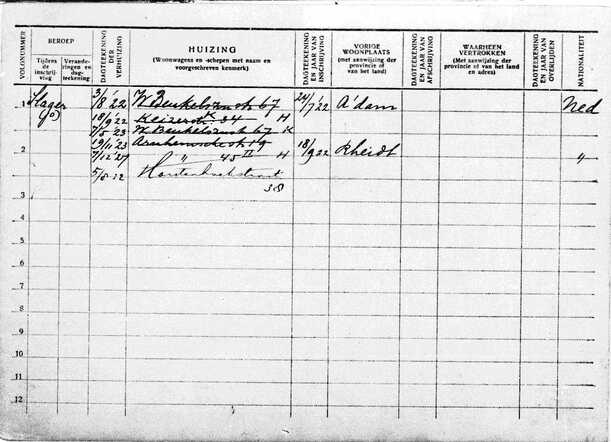 VOLGNUMMER
BEROEP
Tijdens de inschrijving
Veranderingen en dagteekening
DAGTEEKENING DER VERHUIZING
HUIZING
(Woonwagens en -schepen met naam en voorgeschreven kenmerk)
DAGTEEKENING EN JAAR VAN INSCHRIJVING
VORIGE WOONPLAATS
(met aanwijzing der provincie of van het land)
DAGTEEKENING EN JAAR VAN AFSCHRIJVING
WAARHEEN VERTROKKEN
(Met aanwijzing der provincie of van het land en adres)
DAGTEEKENING EN JAAR VAN OVERLIJDEN
NATIONALITEIT
1 Slager 3/8 '22 W Beukelsznstr 67 24/7 22 A'dam Ned
18/9 '22 Keizerstr 34 H
7/5 '23 W Beukelsznstr 67 K
19/11 '23 19 18/9 22 Rheidt
2 7/12 '27 " 45 II H "
5/5 32
38
3
4
5
6
7
8
9
10
11
12